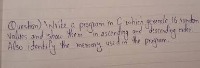 Question) Write a program in C which generate 10 random
values and show them in ascending and descending order.
Also identify the memory used in the program.